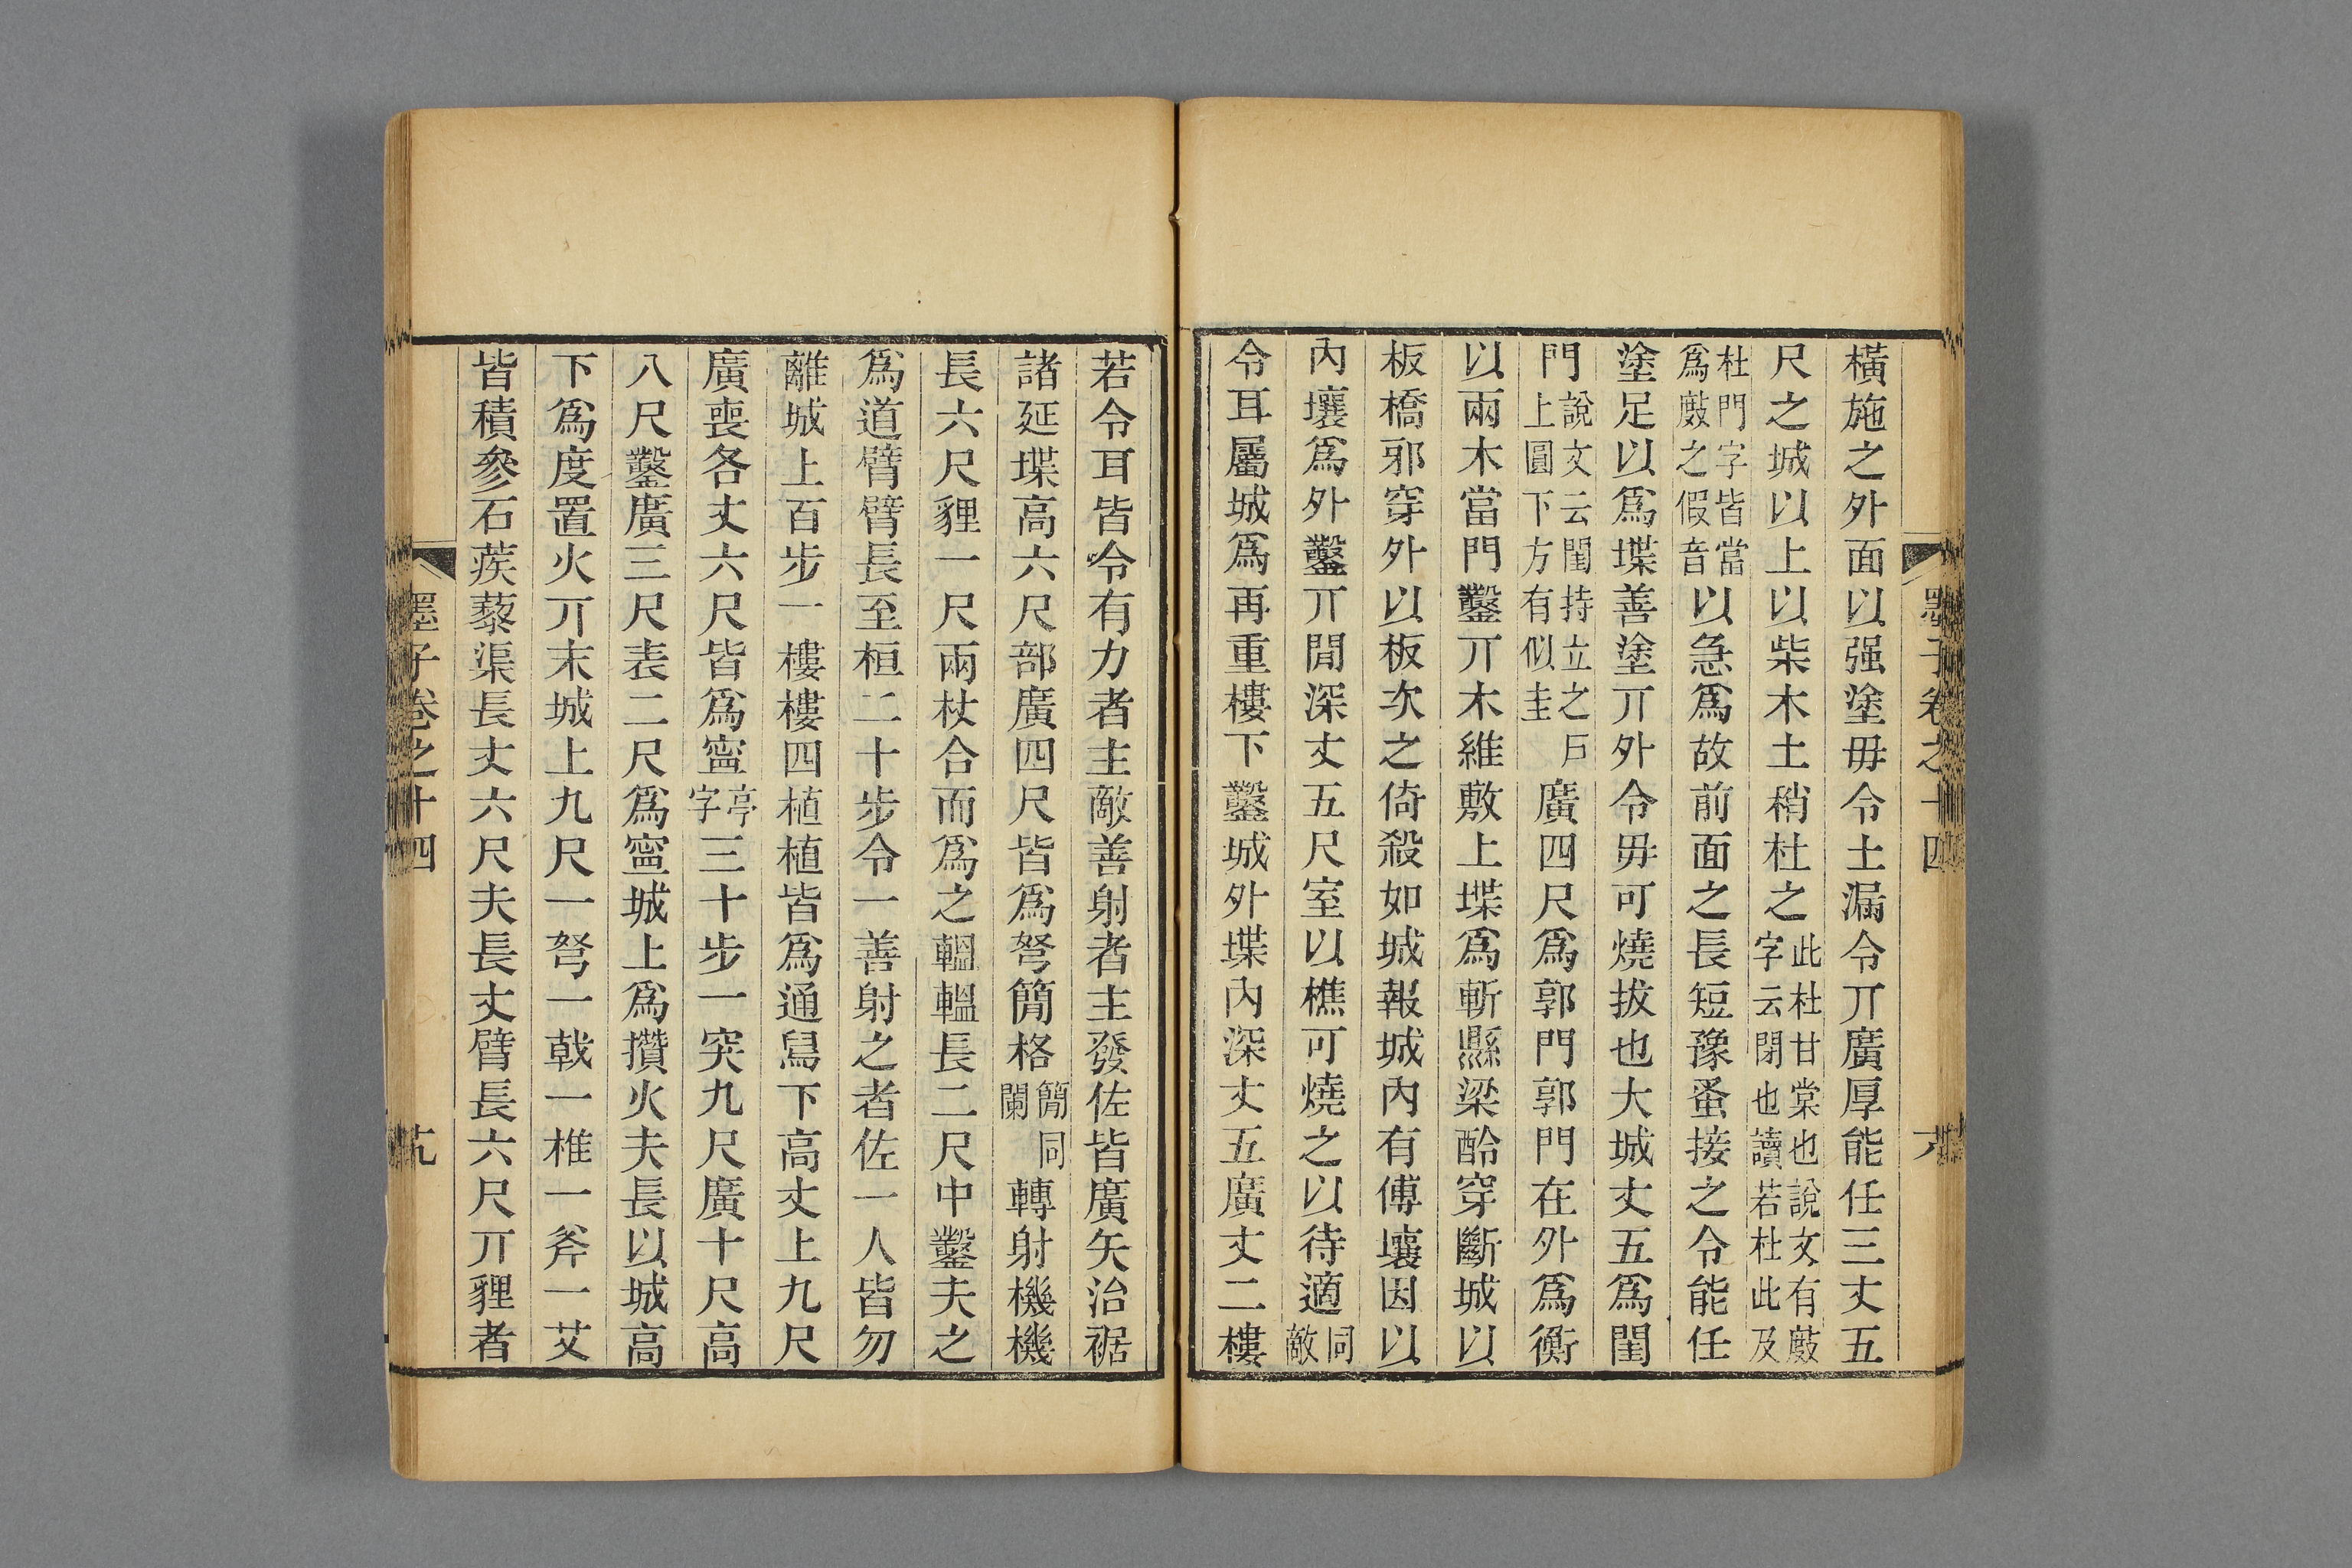 橫施之外面以强塗毋令土漏令丌廣厚能任三丈五
尺之城以上以柴木土稍杜之此杜甘棠也說文有敱字云閉也讀若杜此及
杜門字皆當爲敱之假音以急爲故前面之長短豫蚤接之令能任
塗足以爲堞善塗丌外令毋可燒拔也大城丈五爲閨
門說文云閨持立之戶上圓下方有似圭廣四尺爲郭門郭門在外爲衡
以兩木當門鑿丌木維敷上堞爲斬縣梁酓穿斷城以
板橋邪穿外以板次之倚殺如城報城內有傅壤因以
內壤爲外鑿丌閒深丈五尺室以樵可燒之以待適同敵
令耳屬城爲再重樓下鑿城外堞內深丈五廣丈二樓
墨子卷之十四
若令耳皆令有力者主敵善射者主發佐皆廣矢治裾
諸延堞高六尺部廣四尺皆爲弩簡格簡同闌轉射機機
長六尺貍一尺兩杖合而爲之轀轀長二尺中鑿夫之
爲道臂臂長至桓二十步令一善射之者佐一人皆勿
離城上百步一樓樓四植植皆爲通舄下高丈上九尺
廣喪各丈六尺皆爲寍亭字三十步一突九尺廣十尺高
八尺鑿廣三尺表二尺爲寍城上爲攢火夫長以城高
下爲度置火丌末城上九尺一弩一戟一椎一斧一艾
皆積參石蒺藜渠長丈六尺夫長丈臂長六尺丌貍者
墨子卷之十四